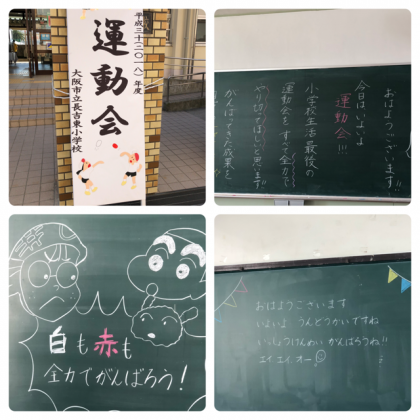 平成三十(二〇一八)年度
運動会
大阪市立長吉東小学校
おはようございます!!
今日はいよいよ
運動会!!!
小学校生活最後の
運動会を すべて全力で
やり切ってほしいと思います!!
がんばってきた成果を
白も赤も
全力でがんばろう!
おはようございます
いよいよ うんどうかいですね
いっしょうけんめい がんばろうね!!
エイ エイ オー